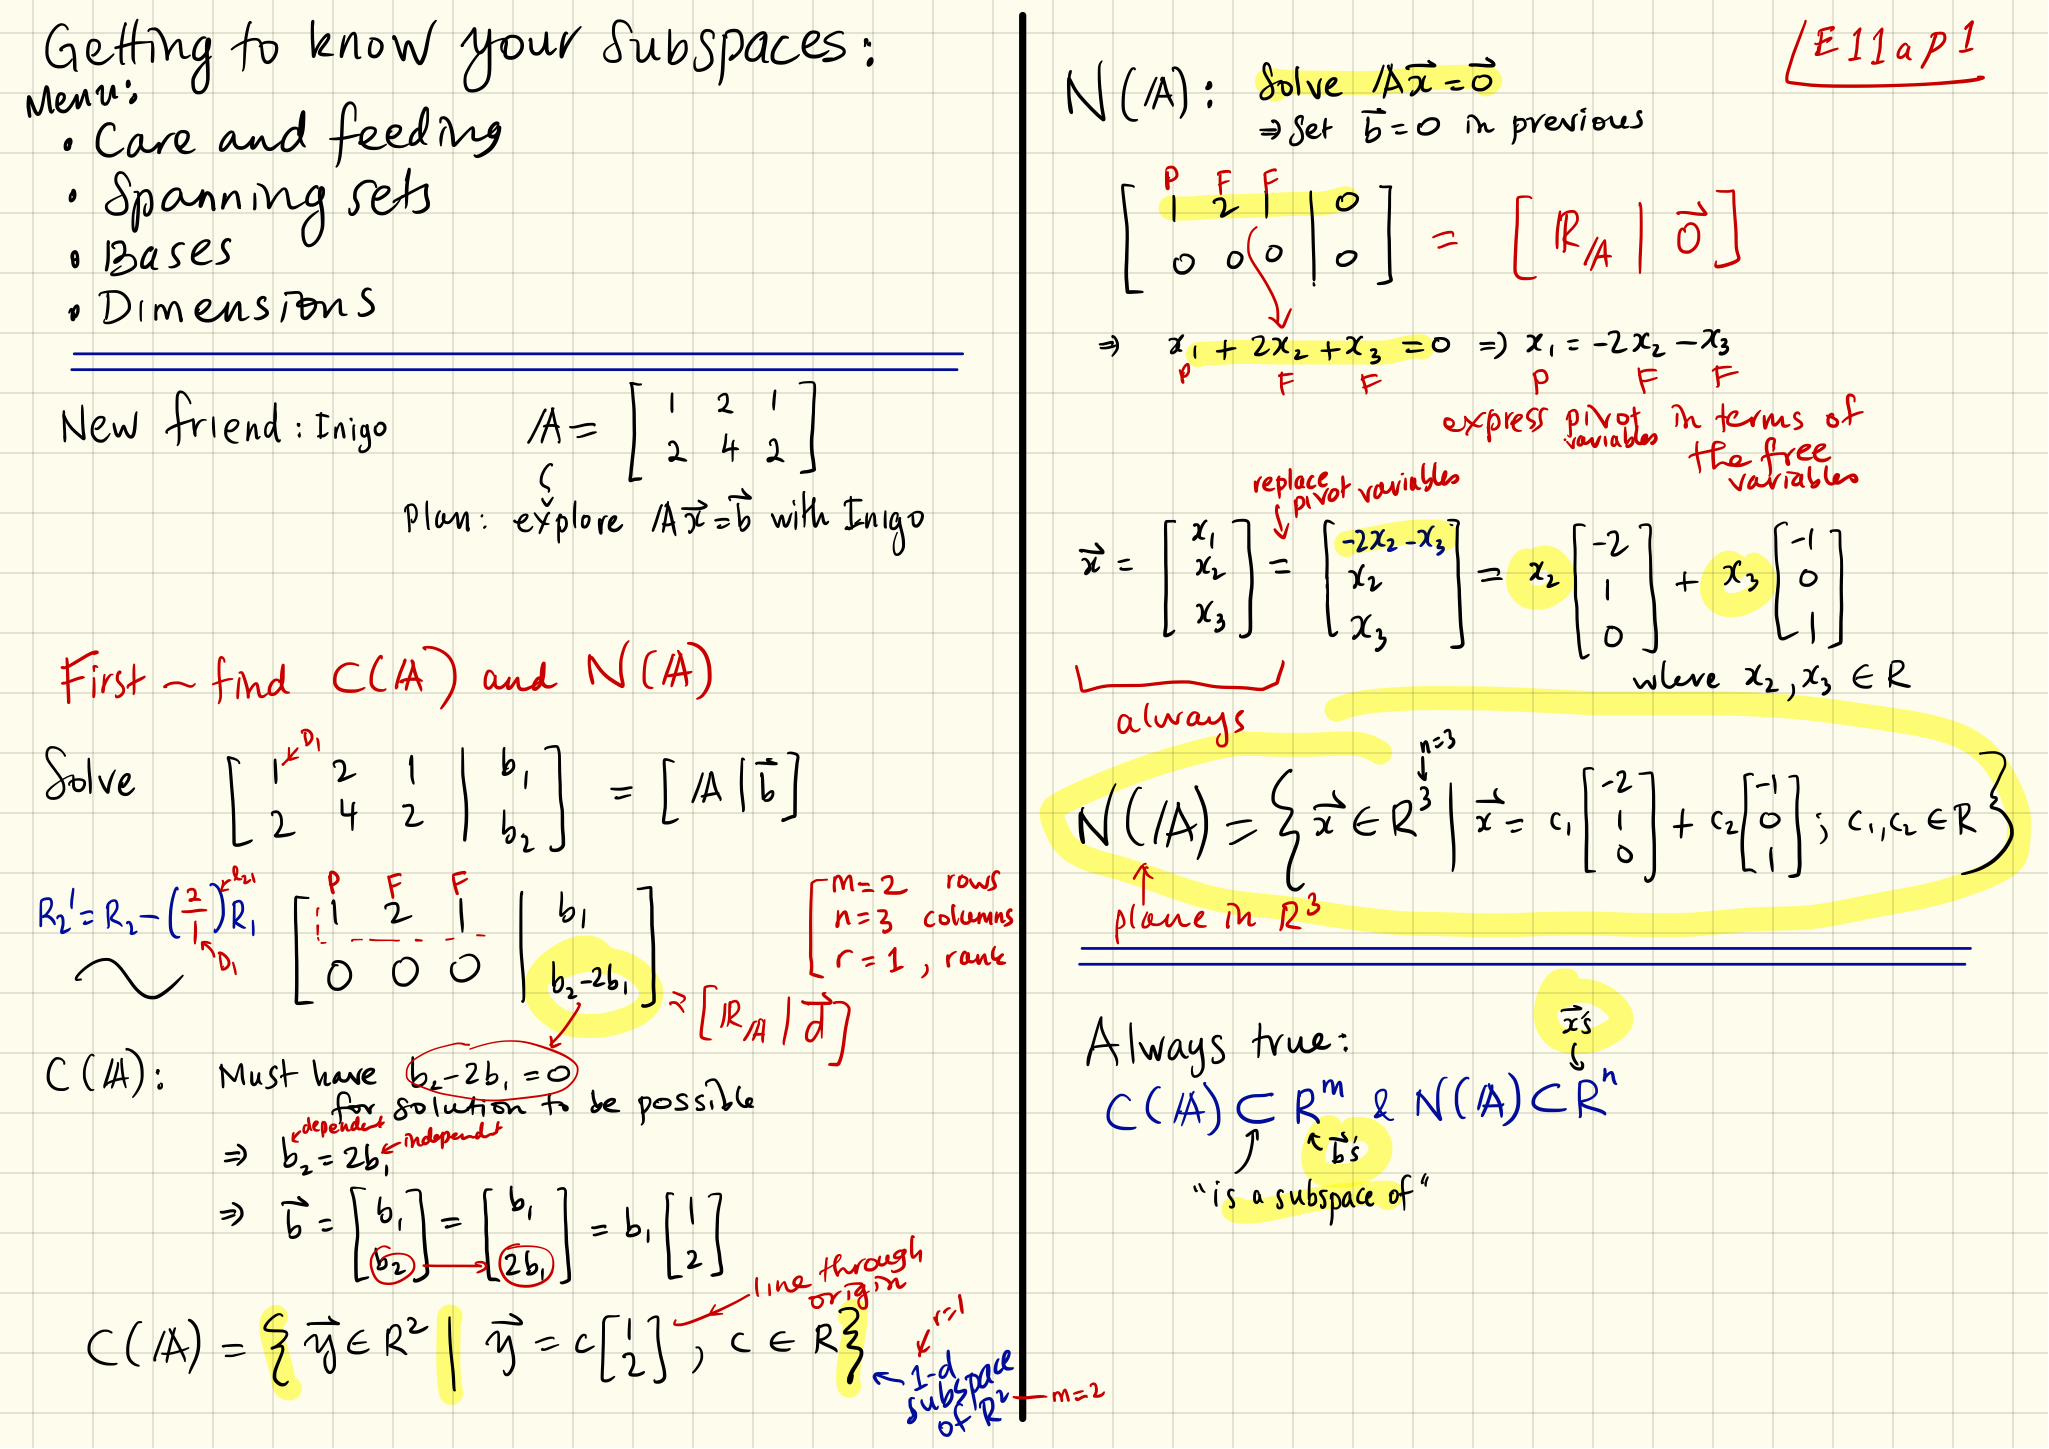 Getting to know your subspaces:
Menu:
• Care and feeding
• Spanning sets
• Bases
• Dimensions
New friend: Inigo
A = [ 1 2 1
2 4 2 ]
Plan: explore Ax⃗ = b⃗ with Inigo
First ~ find C(A) and N(A)
D1
Solve [ 1 2 1 | b1
2 4 2 | b2 ] = [ A | b⃗ ]
R2' = R2 - (2/1) R1
l21
D1
P F F
[ 1 2 1 | b1
0 0 0 | b2-2b1 ] = [ RA | d⃗ ]
m = 2 rows
n = 3 columns
r = 1, rank
C(A): Must have b2-2b1 = 0
for solution to be possible
dependent independent
⇒ b2 = 2b1
⇒ b⃗ = [ b1
b2 ] = [ b1
2b1 ] = b1 [ 1
2 ]
line through
origin
C(A) = { y⃗ ∈ R² | y⃗ = c [ 1
2 ], c ∈ R }
r=1
1-d
subspace
of R²
m=2
E11ap1
N(A): Solve Ax⃗ = 0⃗
⇒ Set b⃗ = 0 in previous
P F F
[ 1 2 1 | 0
0 0 0 | 0 ] = [ RA | 0⃗ ]
⇒ x1 + 2x2 + x3 = 0 ⇒ x1 = -2x2 - x3
P F F P F F
express pivot variables in terms of
the free
variables
replace
pivot variables
x⃗ = [ x1
x2
x3 ] = [ -2x2 - x3
x2
x3 ] = x2 [ -2
1
0 ] + x3 [ -1
0
1 ]
where x2, x3 ∈ R
always
n=3
N(A) = { x⃗ ∈ R³ | x⃗ = c1 [ -2
1
0 ] + c2 [ -1
0
1 ]; c1, c2 ∈ R }
plane in R³
Always true:
x⃗'s
C(A) ⊂ Rᵐ & N(A) ⊂ Rⁿ
b⃗'s
"is a subspace of"